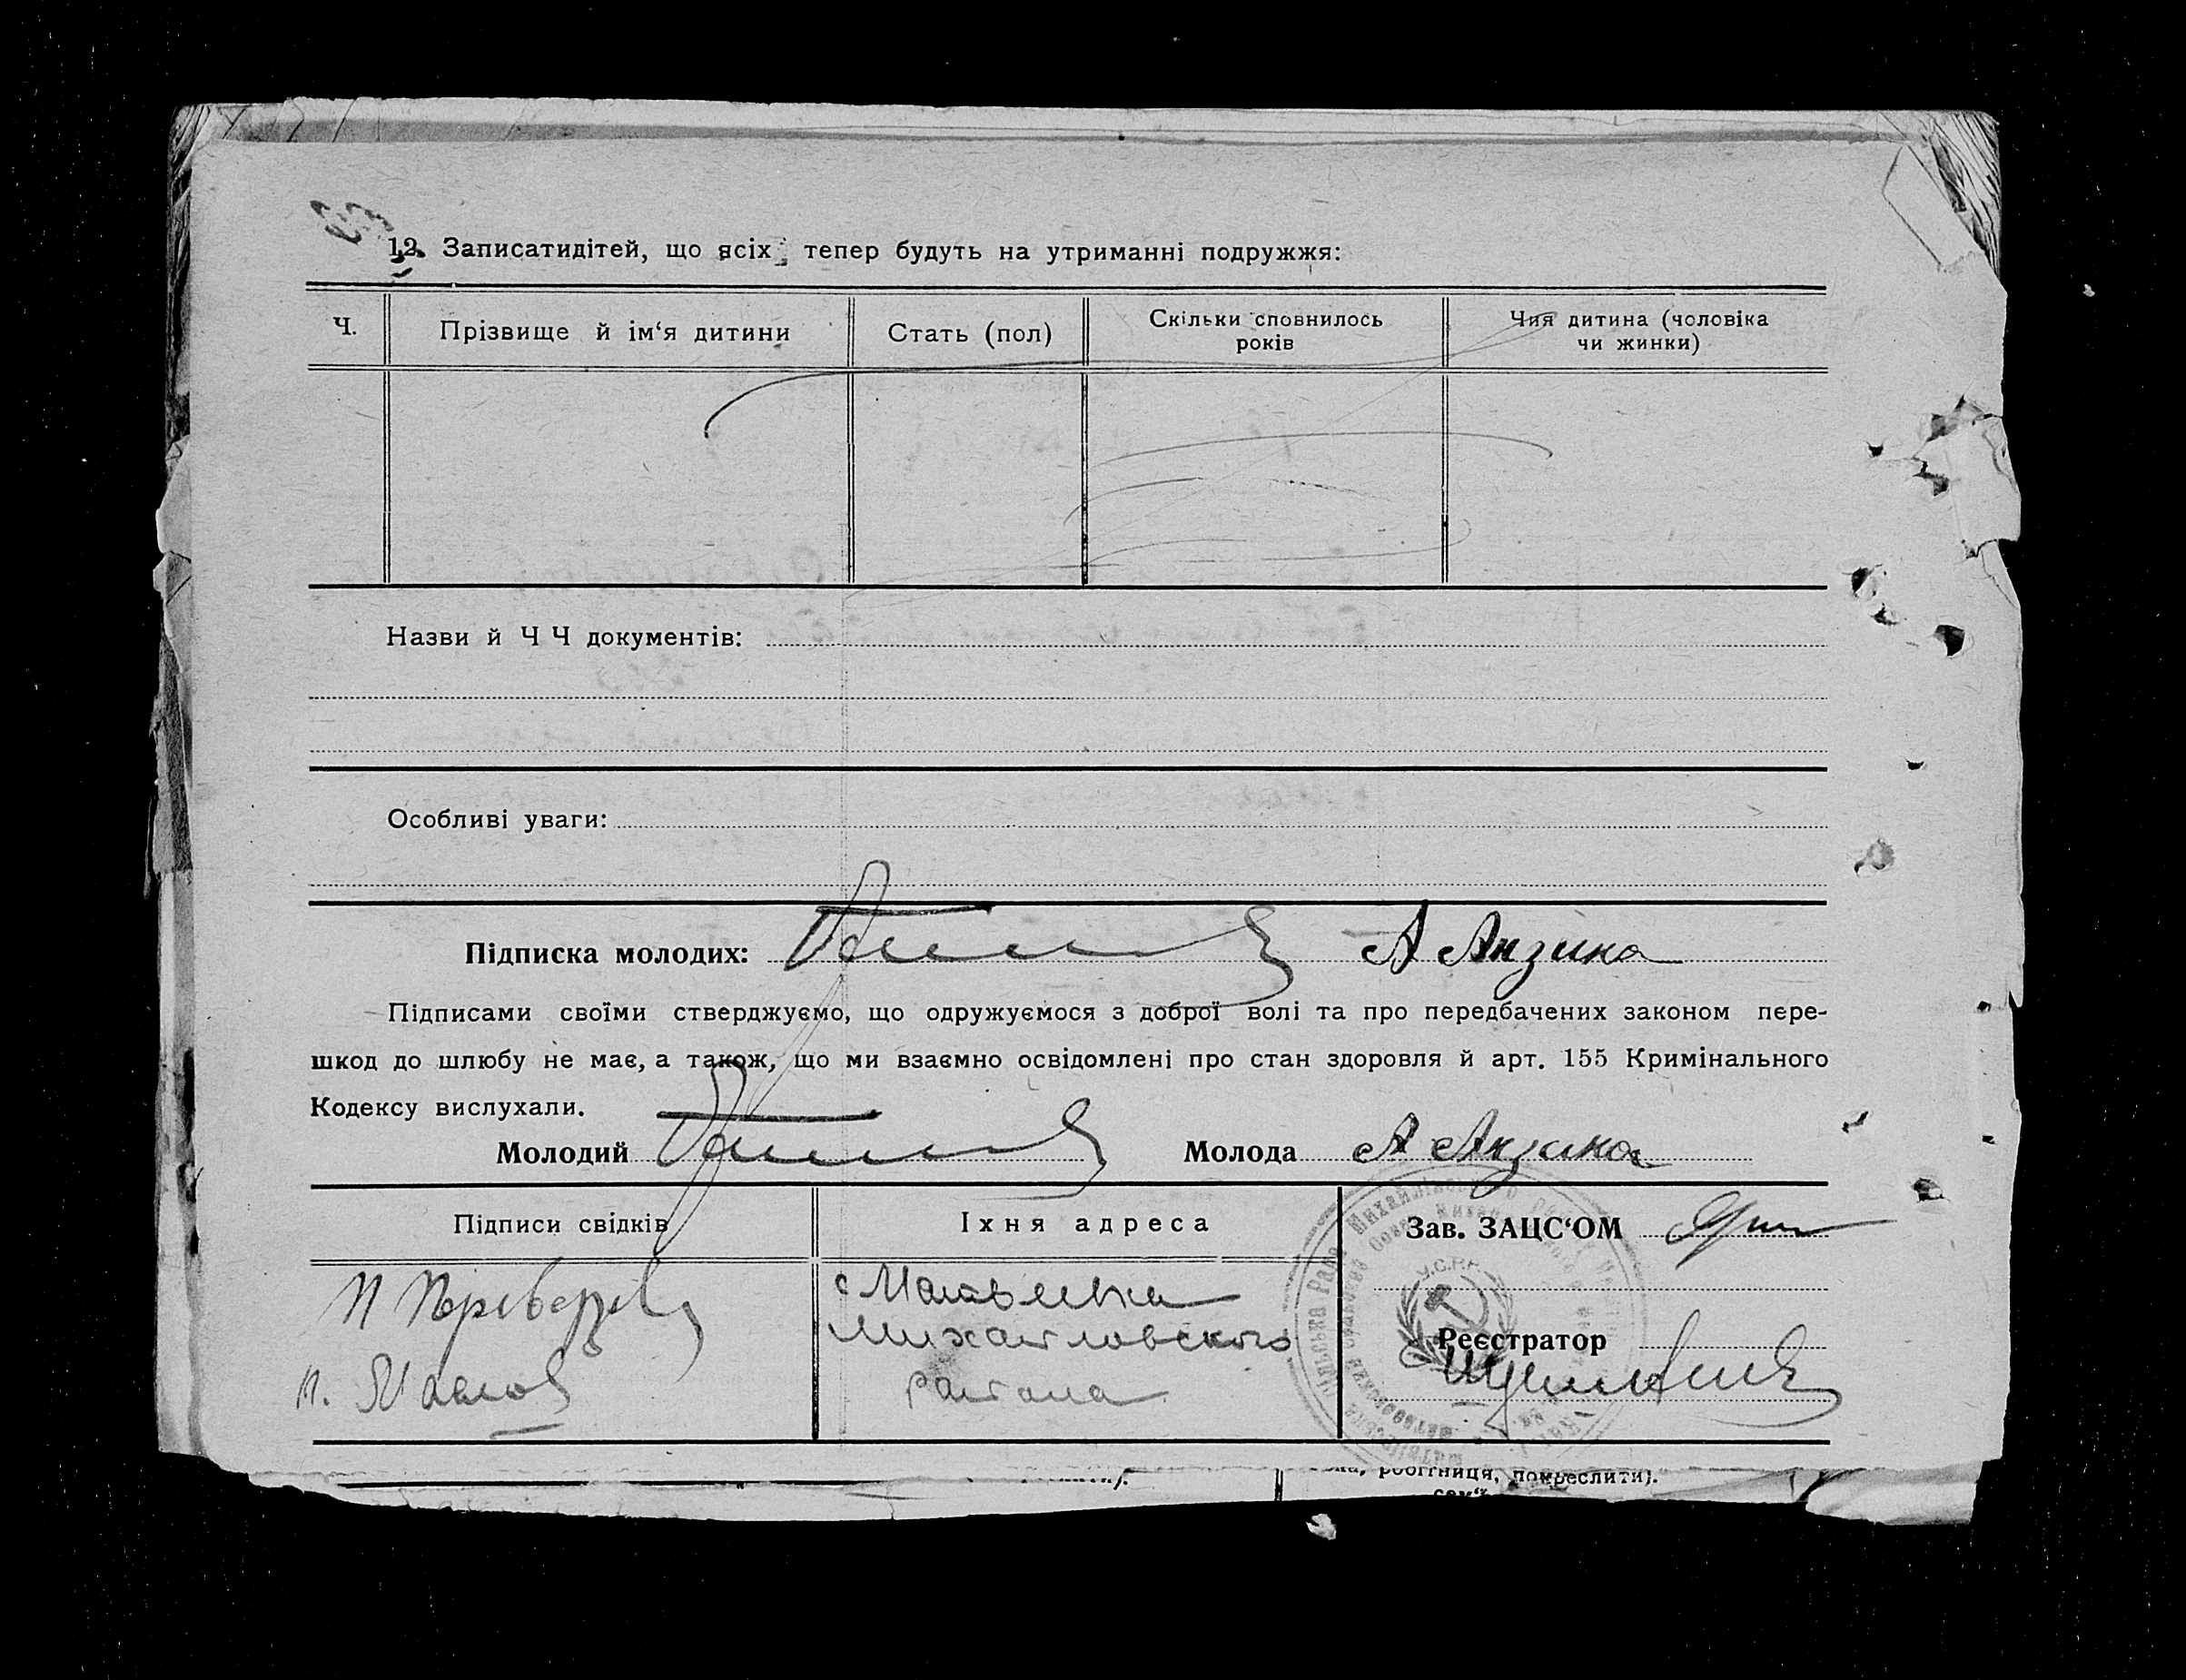 12. Записатидітей, що всіх тепер будуть на утриманні подружжя:
Ч.
Прізвище й ім‘я дитини
Стать (пол)
Скільки сповнилось
років
Чия дитина (чоловіка
чи жинки)
Назви й Ч Ч документів:
Особливі уваги:
Підписка молодих: А Анзина
Підписами своїми стверджуємо, що одружуємося з доброї волі та про передбачених законом пере-
шкод до шлюбу не має, а також, що ми взаємно освідомлені про стан здоровля й арт. 155 Кримінального
Кодексу вислухали.
Молодий Молода А Анзина
Підписи свідків
Їхня адреса
Зав. ЗАЦС‘ОМ
П Переверзев
П. Павлов
с Матвеевка
Михайловского
района
Реєстратор
У.С.Р.Р.
робітниця, покреслити).